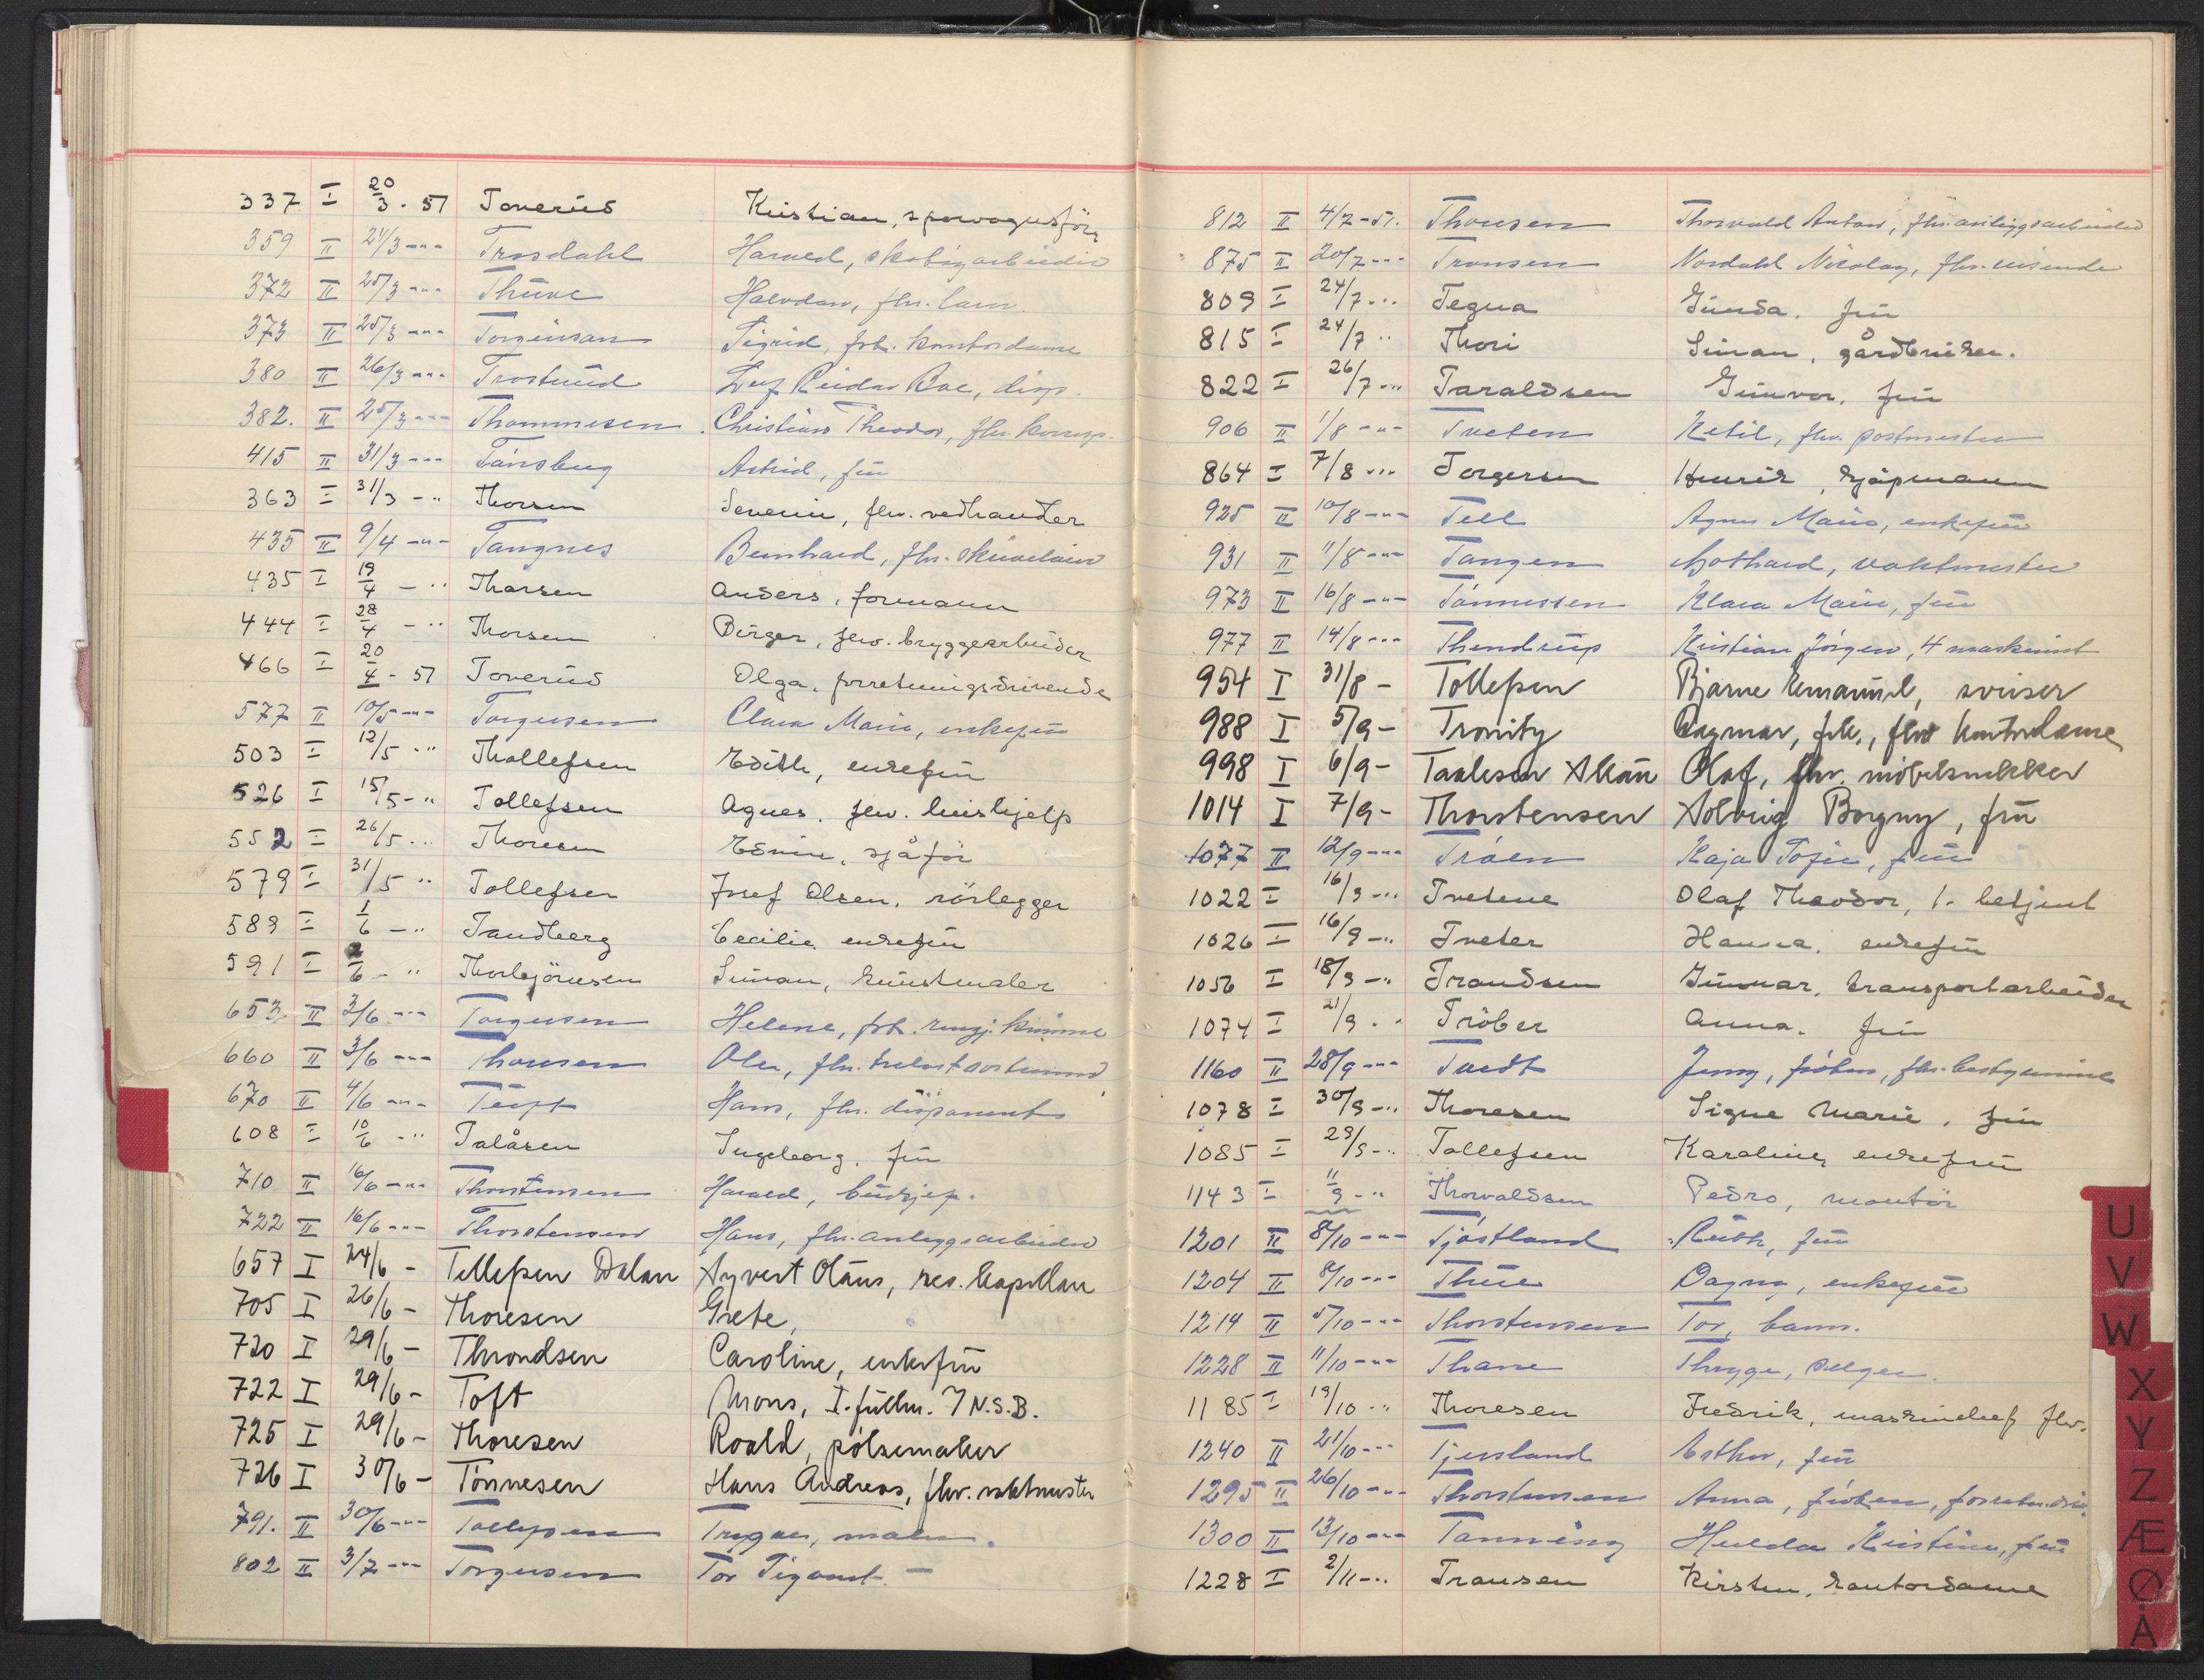 337 I 20/3 - 51 Toverud Kristian, sporvognsfører
359 II 21/3 -"- Trosdahl Harald,
372 II 25/3 -"- Thune Halvdan, fhv.
373 II 25/3 -"- Torgersen Sigrid, frk. kontordame
380 II 26/3 -"- Trostrud Leif Reidar Boe, disp.
382. II 25/3 -"- Thommesen Christian Theodor, fhv. korresp.
415 II 31/3 -"- Tønsberg Astrid, frú
363 I 31/3 - " Thorsen Severin, fhv. vedhandler
435 II 9/4 -"- Tangnes Bernhard, fhv.
435 I 19/4 - " Thorsen Anders, formann
444 I 28/4 - " Thorsen Birger, fhv. bryggearbeider
466 I 20/4 - 51 Toverud Olga, forretningsdrivende
577 II 10/5 -"- Torgersen Clara Marie, enkefrú
503 I 12/5 - " Thollefsen Edith, enkefrú
526 I 15/5 - " Tollefsen Agnes, fhv. húshjelp
552 I 26/5 - " Thoresen Edvin, sjåfør
579 I 31/5 " Tollefsen Josef Olsen, rørlegger
589 I 1/6 - " Tandberg Cecilie, enkefrú
591 I 2/6 - " Thorbjørnsen Simon, kunstmaler
653 II 2/6 -"- Torgersen Helene, frk. rengj. kvinne
660 II 3/6 -"- Thoresen Ole, fhv. trelastsorterer
670 II 4/6 -"- Hans, fhv. disponent
608 I 10/6 - " Talåsen Ingeborg, frú
710 II 16/6 -"- Thorstensen Harald,
722 II 16/6 -"- Thorstensen Hans, fhv. anleggsarbeider
657 I 24/6 - Tellefsen Dalan Syvert Olaus, res. kapellan
705 I 26/6 - Thoresen Grete,
720 I 29/6 - Throndsen Caroline, enkefrú
722 I 29/6 - Toft Mons, I. fullm. I N.S.B.
725 I 29/6 - Thoresen Roald, pølsemaker
726 I 30/6 - Tønnesen Hans Andreas, fhv. vaktmester
791. II 30/6 -"- Tollefsen Trygve, maler.
802 II 3/7 -"- Torgersen Tor Sigurd -
812 II 4/7 - 51. Thoresen Thorvald Anton, fhv. anleggsarbeider
875 II 20/7 -"- Tronsen Nordahl Nicolay, fhv. reisende
809 I 24/7 - " Tegna Gunda. frú
815 I 24/7 " Thori Simon, gårdbruker.
822 I 26/7 - " Taraldsen Gunvor. frú
906 II 1/8 -"- Tveten Ketil, fhv. postmester
864 I 7/8 - " Torgersen Henrik, kjøpmann
925 II 10/8 -"- Tell Agnes Marie, enkefrú
931 II 11/8 -"- Tangen Gothard, vaktmester
973 II 16/8 -"- Tønnessen Klara Marie, frú
977 II 14/8 -"- Thendrup Kristian Jørgen, 4 maskinist
954 I 31/8 - Tollefsen Bjarne Emanuel, sveiser
988 I 5/9 - Tronity Dagmar, frk., fhv kontordame
998 I 6/9 - Taalesen Skau Olaf, fhv. møbelsnekker
1014 I 7/9 - Thorstensen Solveig Borgny, frú
1077 II 12/9 -"- Trøen Kaja Sofie, frú
1022 I 16/9 - " Tvetene Olaf Theodor, 1. betjent
1026 I 16/9 - " Tveter Hanna. enkefrú
1056 I 18/9 - " Trondsen Gunnar, transportarbeider
1074 I 21/9 - " Trøber Anna. frú
1160 II 28/9 -"- Tvedt Jenny, frøken, fhv. bestyrerinne
1078 I 30/9 - " Thoresen Signe Marie, frú
1085 I 29/9 - " Tollefsen Karoline, enkefrú
1143 I 11/9 - " Thorvaldsen Pedro, montør
1201 II 8/10 -"- Tjøstland Ruth, frú
1204 II 8/10 -"- Thue Dagny, enkefrú
1214 II 5/10 -"- Thorstensen Tor, barn.
1228 II 11/10 -"- Thane Thrygve, selger.
1185 I 19/10 " Thoresen Fredrik, maskinchef fhv.
1240 II 21/10 -"- Tjersland Esther, frú
1295 II 26/10 -"- Thorstensen Anna, frøken, forretn.driv.
1300 II 13/10 -"- Tanning Hulda Kristine, frú
1228 I 2/11 - " Transen Kirsten, kontordame
U
V
W
X
Y
Z
Æ
Ø
Å